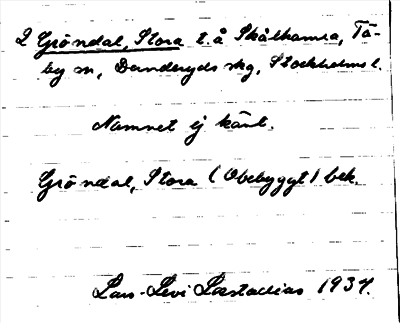 2 Gröndal, Stora t. å Skålhamra, Tä-
by sn, Danderyds skg, Stockholms l.
Namnet ej känt.
Gröndal, Stora (Obebyggt) bek.
Lars-Levi Læstadius 1937.